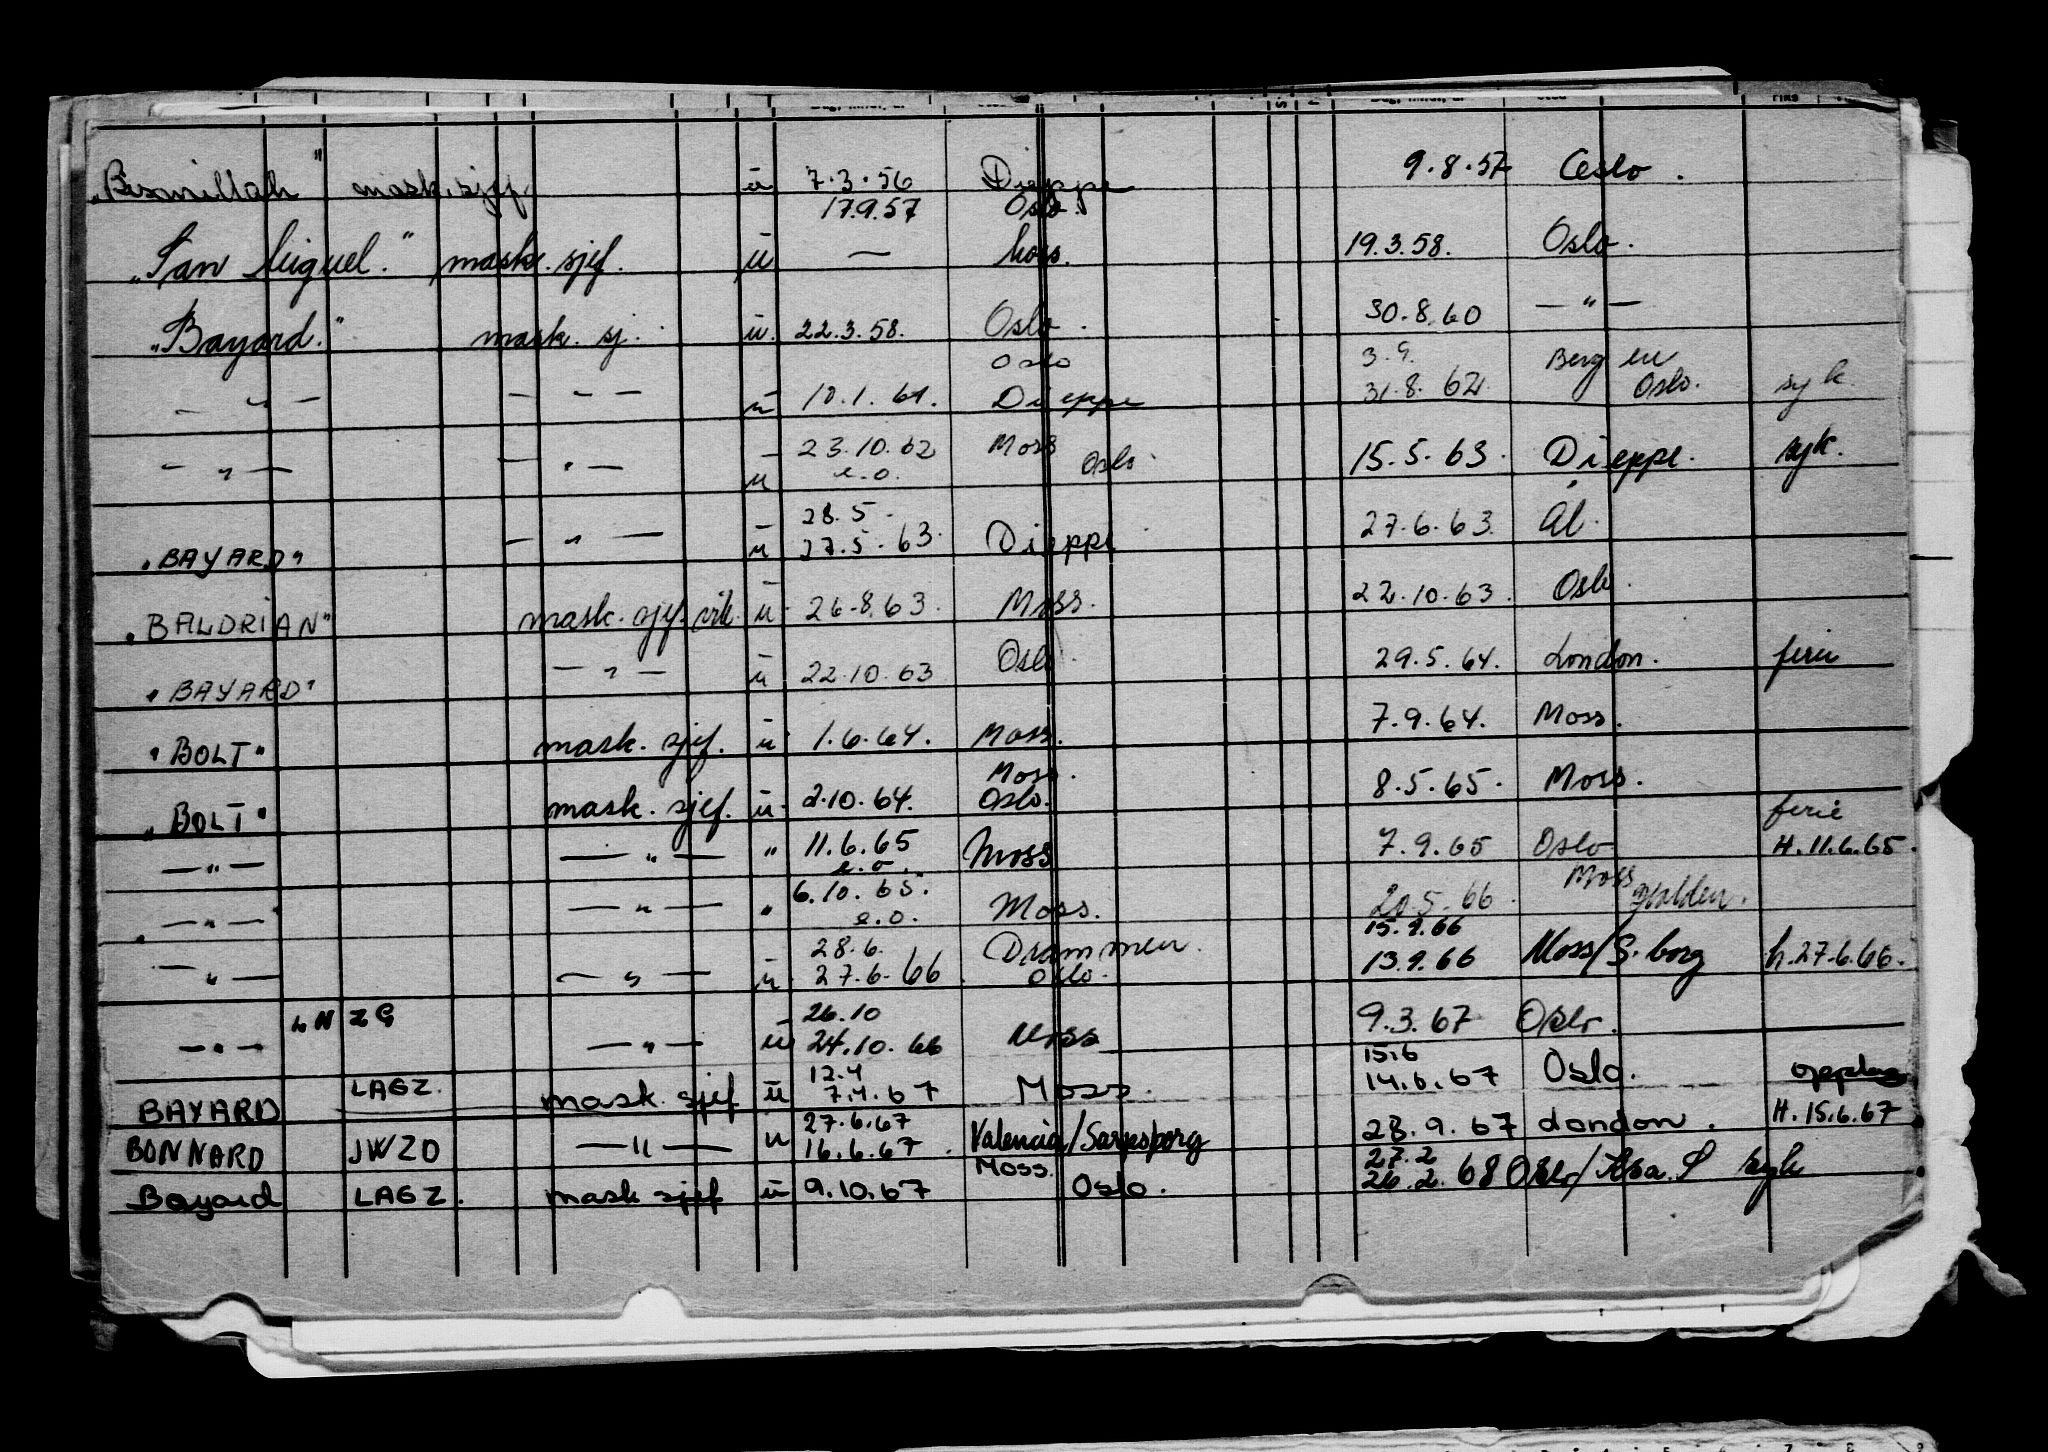 „Bismillah" mask. sjef. ū 7.3.56 Dieppe 9.8.57 Oslo.
17.9.57 Oslo.
„San Miguel." mask. sjef. ū — Moss. 19.3.58. Oslo.
„Bayard." mask. sj. ū. 22.3.58. Oslo. 30.8.60 — " —
Oslo 3.9. Bergen
— " — — " — ū 10.1.61. Dieppe 31.8.62. Oslo. syk.
— " — — " — ū 23.10.62 Moss 15.5.63. Dieppe. syk.
e.o. Oslo.
28.5.
"BAYARD" — " — ū 27.5.63. Dieppe 27.6.63. Ål.
"BALDRIAN" mask. sjef. vik. ū 26.8.63. Moss. 22.10.63. Oslo.
"BAYARD" — " — ū 22.10.63 Oslo. 29.5.64. London. ferie
"BOLT" mask. sjef. ū 1.6.64. Moss. 7.9.64. Moss.
Moss.
"BOLT" mask. sjef. ū 2.10.64. Oslo. 8.5.65. Moss.
ferie
— " — — " — " 11.6.65 Moss 7.9.65 Oslo H. 11.6.65.
e.o. Moss
— " — — " — " 6.10.65. Moss. 20.5.66. Halden.
e.o.
28.6. Drammen. 15.9.66
— " — — " — ū. 27.6.66 Oslo. 13.9.66 Moss/S.borg h. 27.6.66.
LNZG 26.10
— " — — " — ū 24.10.66 Moss 9.3.67 Oslo.
12.4 15.6
BAYARD LAGZ. mask. sjef ū 7.4.67 Moss. 14.6.67 Oslo.
27.6.67 H. 15.6.67
BONNARD JWZD — " — ū 16.6.67. Valencia/Sarpsborg 28.9.67 London.
Moss. 27.2
Bayard LAGZ. mask sjef ū 9.10.67 Oslo. 26.2.68 Oslo/ syk